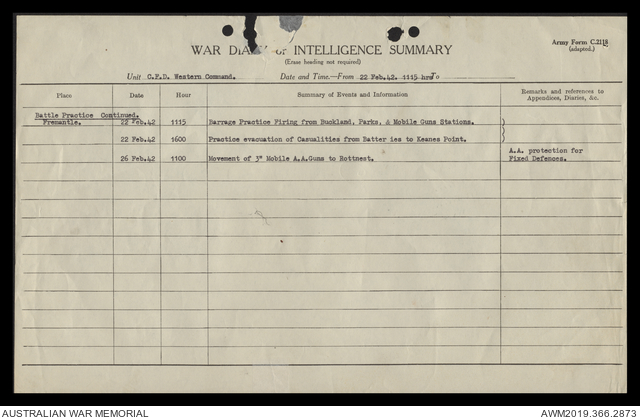 Army Form C.2118
(adapted.)
WAR DIARY or INTELLIGENCE SUMMARY
(Erase heading not required)
Unit C.F.D. Western Command. Date and Time.—From 22 Feb.42. 1115 hrs To
Place Date Hour Summary of Events and Information Remarks and references to
Appendices, Diaries, &c.
Battle Practice Continued.
Fremantle. 22 Feb.42 1115 Barrage Practice Firing from Buckland, Parks, & Mobile Guns Stations.
22 Feb.42 1600 Practice evacuation of Casualities from Batter ies to Keanes Point.
26 Feb.42 1100 Movement of 3" Mobile A.A.Guns to Rottnest. A.A. protection for
Fixed Defences.
AUSTRALIAN WAR MEMORIAL AWM2019.366.2873